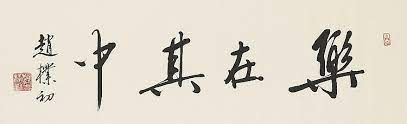 樂在其中
趙樸初